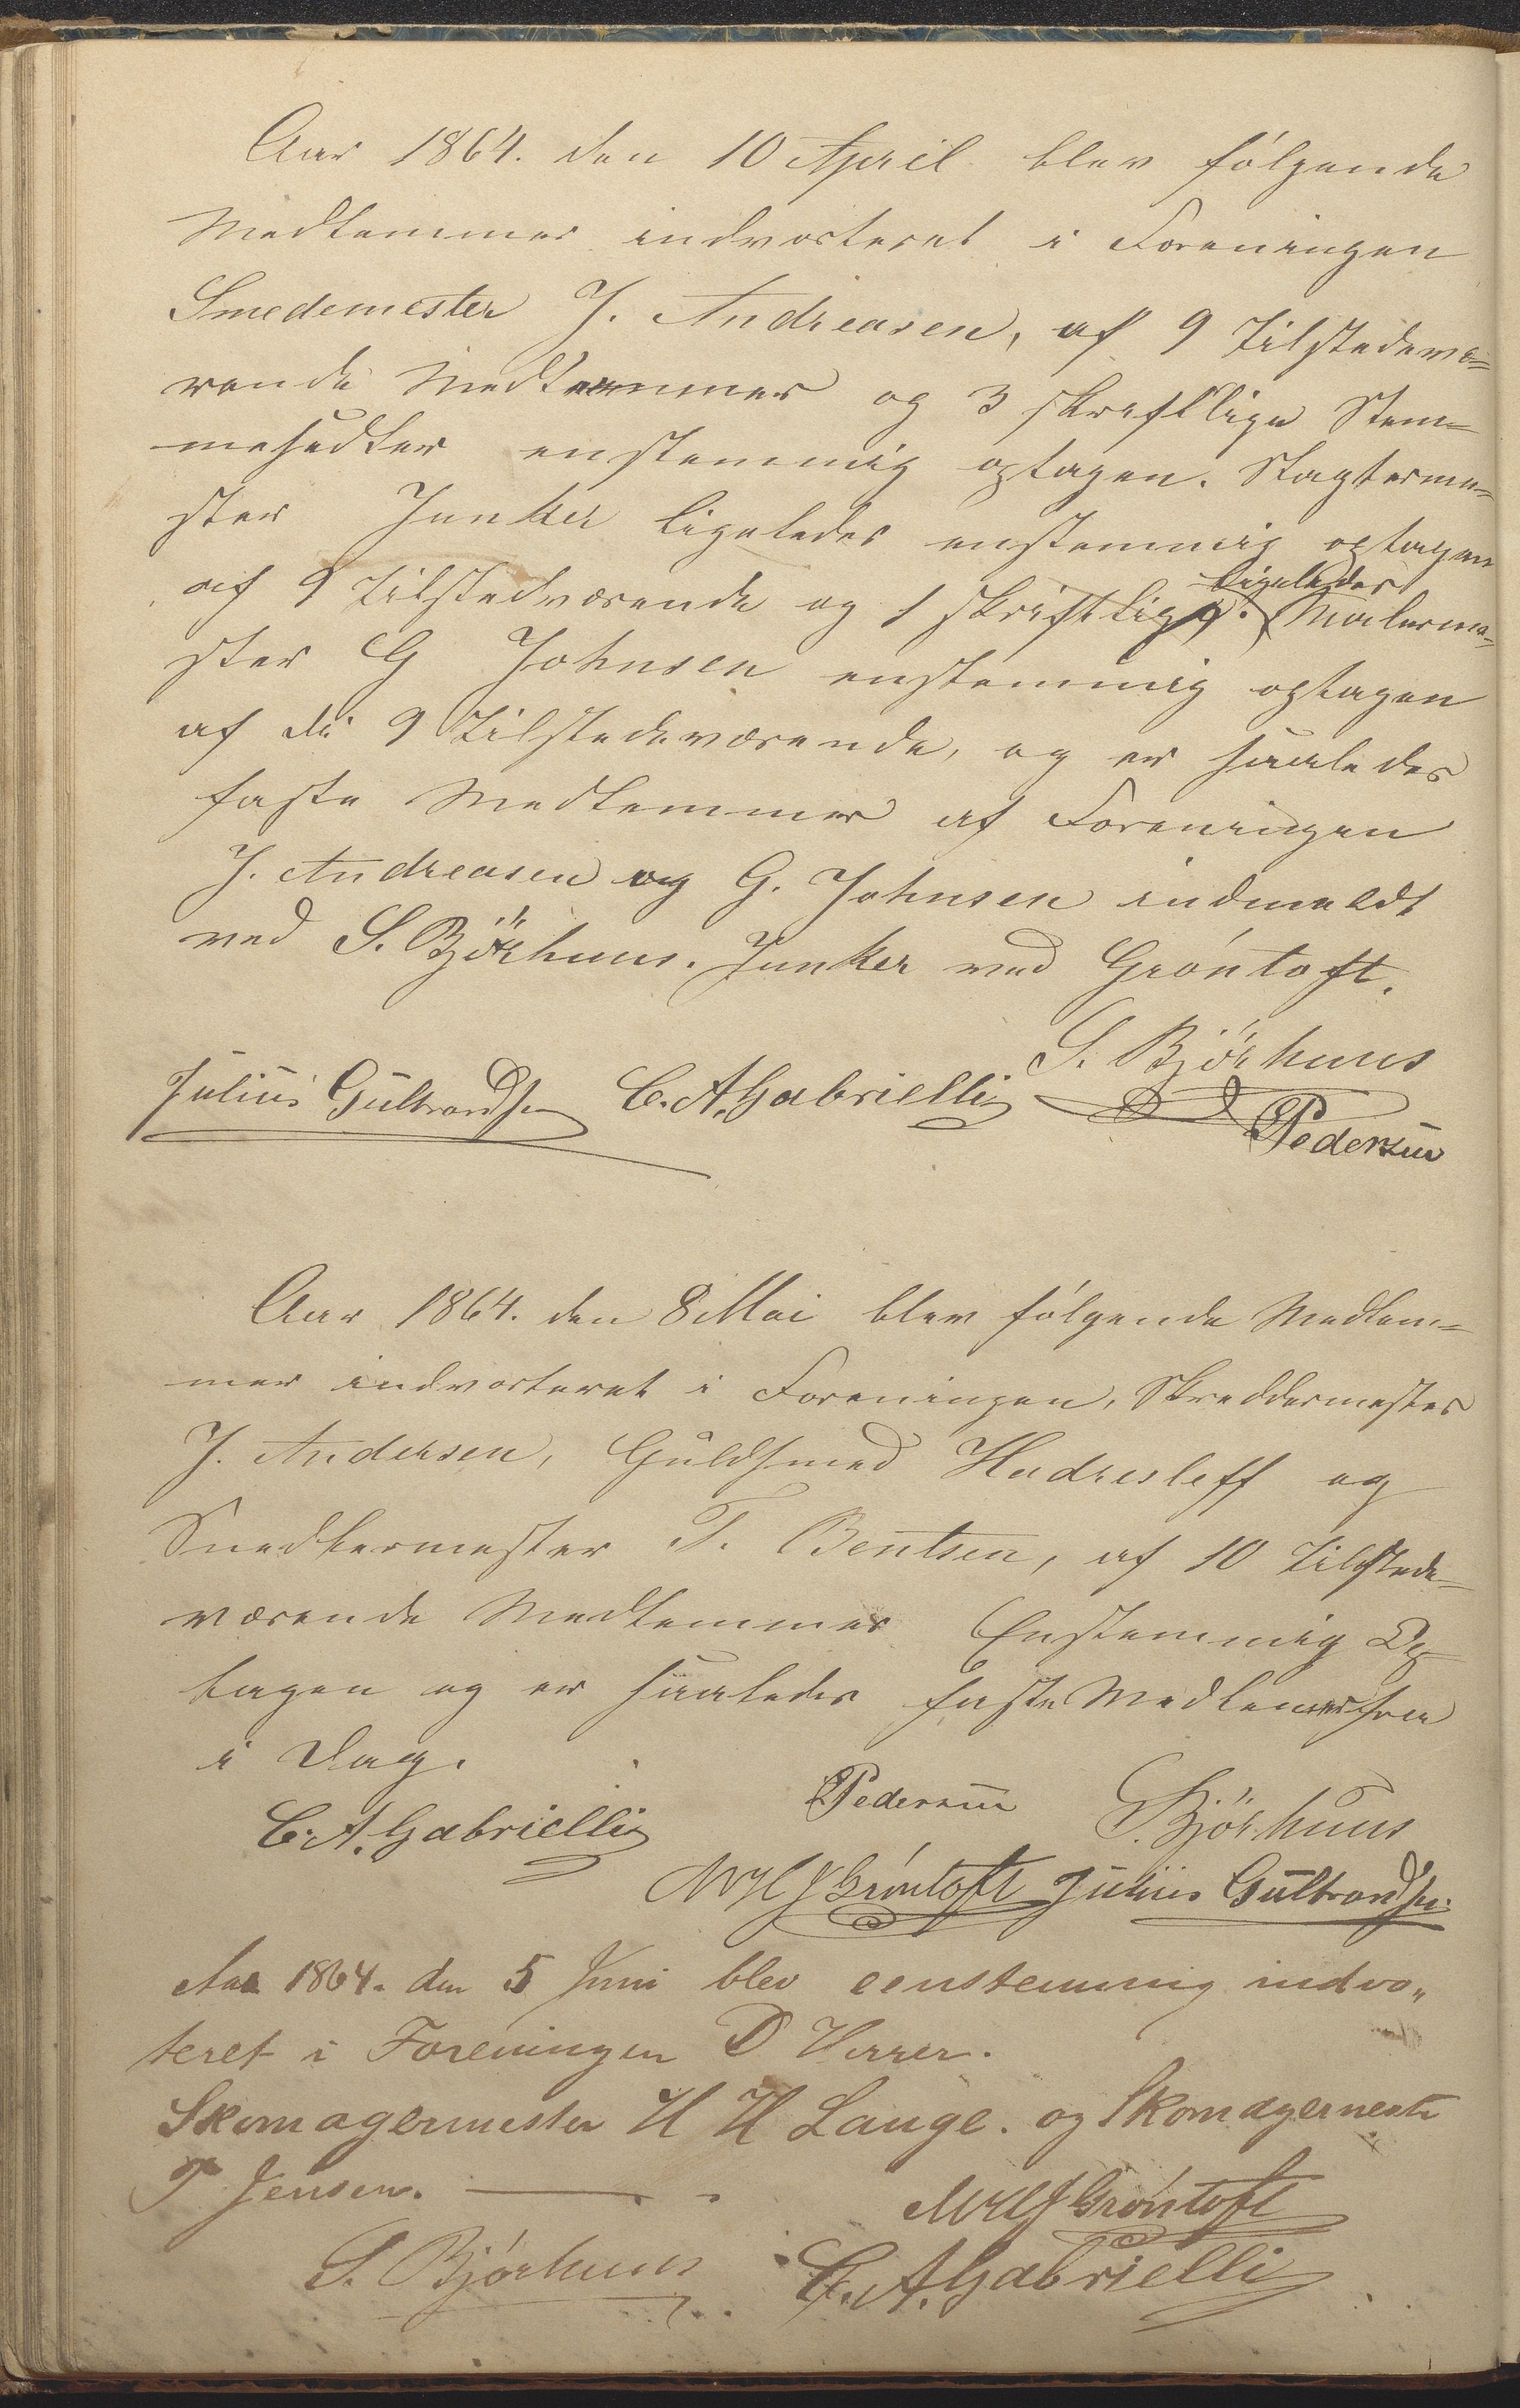 Aar 1864. den 10 April blev følgende
Medlemmer indvoteret i Foreningen
Smedemester J. Andreasen, af 9 Tilstedevæ=
rende Medlemmer og 3 skriftlige Stem=
mesedler enstemmig optagen. Slagterme=
ster Junker ligeledes enstemmig optagen
ligeledes
af 9 Tilstedværende og 1 skriftlig. Malerme=
ster G Johnsen enstemmig optagen
af di 9 Tilstedeværende, og er saaledes
faste Medlemmer af Foreningen
J. Andreasen og G. Johnsen indmeldt
ved S. Björhuus. Junker ved Gróntoft.
S. Björhuus
Julius Gulbrandsen C. A. Gabrielli
Pedersen
Aar 1864. den 8 Mai blev følgende Medlem=
mer indvoteret i Foreningen, Skreddermester
J. Andersen, Guldsmed Hadresleff og
Snedkermester T. Bentsen, af 10 Tilstede=
værende Medlemmer Enstemmig Op
tagen og er saaledes faste Medlemmer fra
i Dag.
C. A. Gabrielli Pedersen S. Björhuus
Gróntoft Julius Gulbrandsen
Aar 1864. den 5 Juni blev eenstemmig indvo„
teret i Foreningen D Herrer.
Skomagermester H H Lange. og Skomagermester
P Jensen.
Gróntoft
S. Björhuus C. A. Gabrielli